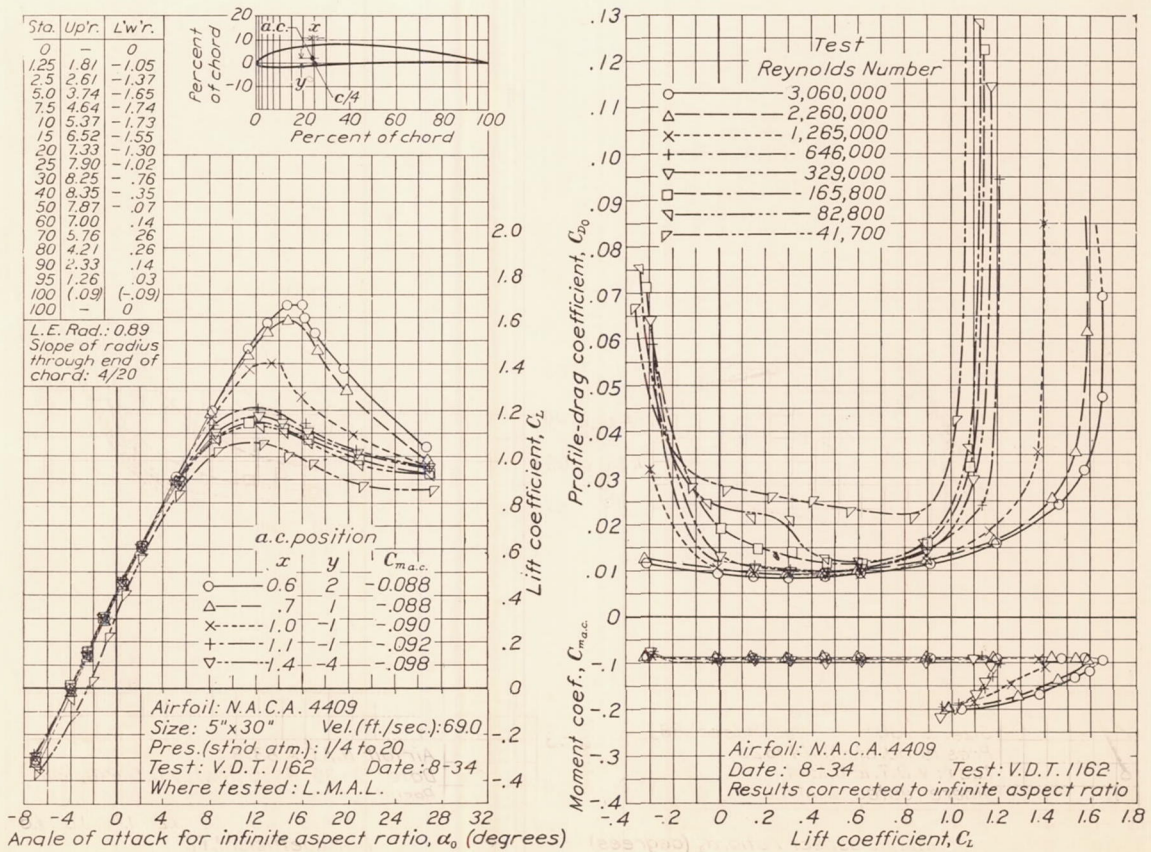 Sta. Up'r. L'w'r.
0 – 0
1.25 1.81 -1.05
2.5 2.61 -1.37
5.0 3.74 -1.65
7.5 4.64 -1.74
10 5.37 -1.73
15 6.52 -1.55
20 7.33 -1.30
25 7.90 -1.02
30 8.25 - .76
40 8.35 - .35
50 7.87 - .07
60 7.00 .14
70 5.76 .26
80 4.21 .26
90 2.33 .14
95 1.26 .03
100 (.09) (-.09)
100 – 0
L.E. Rad.: 0.89
Slope of radius
through end of
chord: 4/20
Percent
of chord
20
10
0
-10
a.c. x
y
c/4
0 20 40 60 80 100
Percent of chord
2.0
1.8
1.6
1.4
1.2
1.0
.6
.4
.2
0
-.2
-.4
Lift coefficient, C_L
a.c. position
x y C_m a.c.
0.6 2 -0.088
.7 1 -.088
1.0 -1 -.090
1.1 -1 -.092
1.4 -4 -.098
Airfoil: N.A.C.A. 4409
Size: 5"x30" Vel.(ft./sec.):69.0
Pres.(st'nd. atm.): 1/4 to 20
Test: V.D.T. 1162 Date: 8-34
Where tested: L.M.A.L.
-8 -4 0 4 8 12 16 20 24 28 32
Angle of attack for infinite aspect ratio, α₀ (degrees)
.13
.12
.11
.10
.09
.08
.07
.06
.05
.04
.03
.02
.01
0
-.1
-.2
-.3
-.4
Profile-drag coefficient, C_D₀
Moment coef., C_m a.c.
Test
Reynolds Number
3,060,000
2,260,000
1,265,000
646,000
329,000
165,800
82,800
41,700
Airfoil: N.A.C.A. 4409
Date: 8-34 Test: V.D.T. 1162
Results corrected to infinite aspect ratio
-.4 -.2 0 .2 .4 .6 .8 1.0 1.2 1.4 1.6 1.8
Lift coefficient, C_L